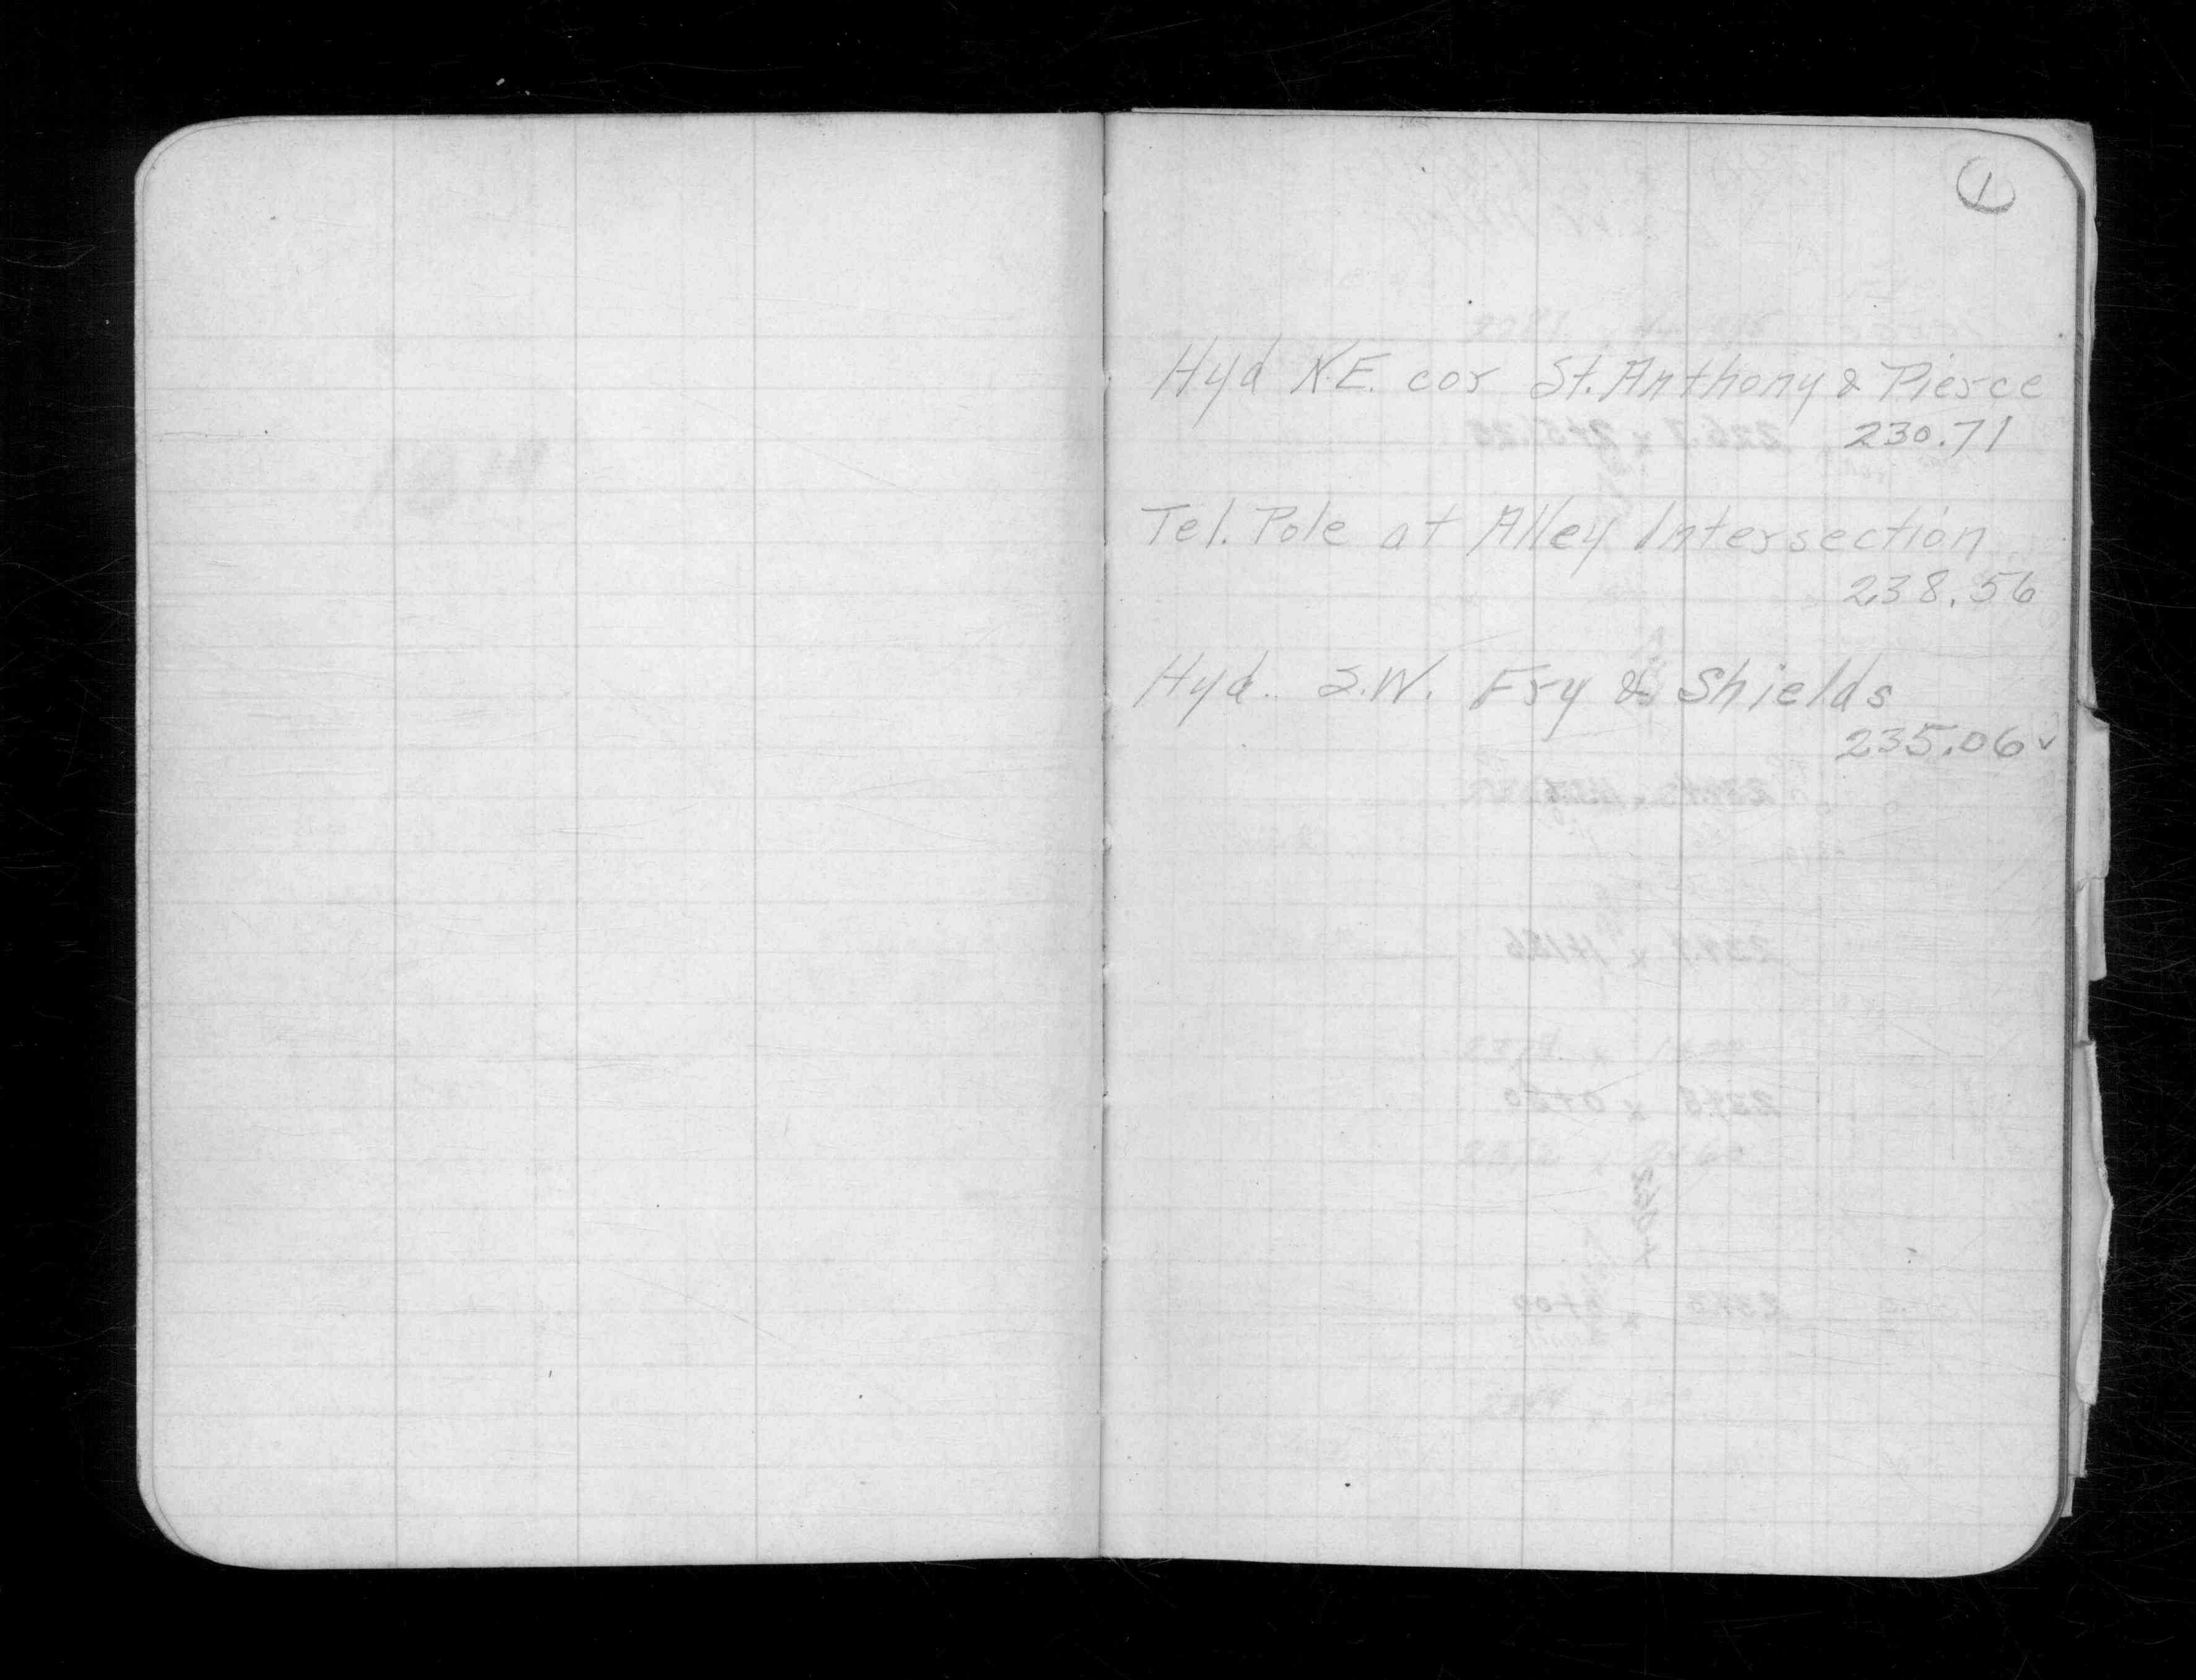 1
Hyd N.E. cor St. Anthony & Pierce
230.71
Tel. Pole at Alley Intersection
238.56
Hyd. S.W. Fry & Shields
235.06 ✓